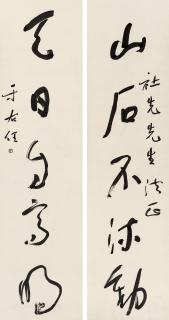 山石不流動
社先先生法正
天日自高明
于右任